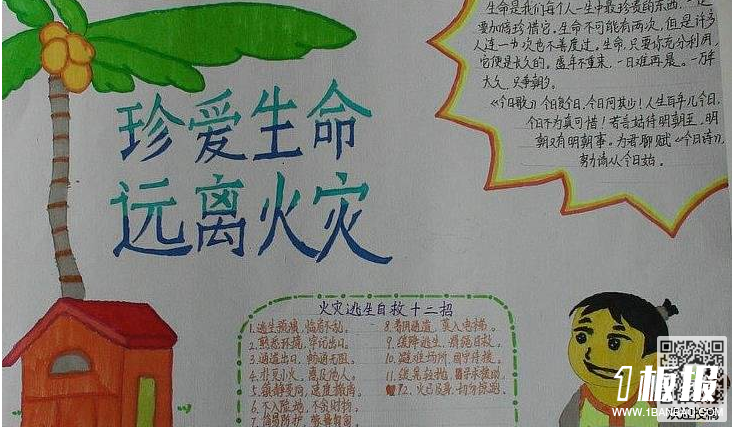 珍爱生命
远离火灾
生命是我们每个人一生中最珍贵的东西，一定
要加倍珍惜它。生命不可能有两次，但是许多
人连一次也不善度过。生命，只要你充分利用，
它便是长久的。盛年不重来，一日难再晨。一万年
太久，只争朝夕。
《今日歌》今日复今日，今日何其少！人生百年几今日，
今日不为真可惜！若言姑待明朝至，明
朝又有明朝事。为君聊赋《今日诗》，
努力请从今日始。
火灾逃生自救十二招
1.逃生预演，临危不乱。
2.熟悉环境，牢记出口。
3.通道出口，畅通无阻。
4.扑灭小火，惠及他人。
5.镇静辨向，迅速撤离
6.不入险地，不贪财物。
7.简易防护，
8.善用通道，莫入电梯。
9.缓降逃生，滑绳自救。
10.避难场所，固守待援。
11.缓晃轻抛，寻求援助
12.火已及身，切勿惊跑
1板报
WWW.1BANBAO.COM
欢迎投稿